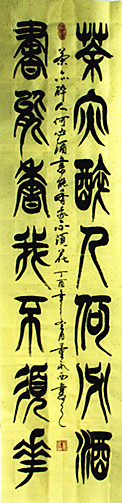 茶亦醉人何必酒
茶亦醉人何必酒書能香我不須花丁酉年
書能香我不須華